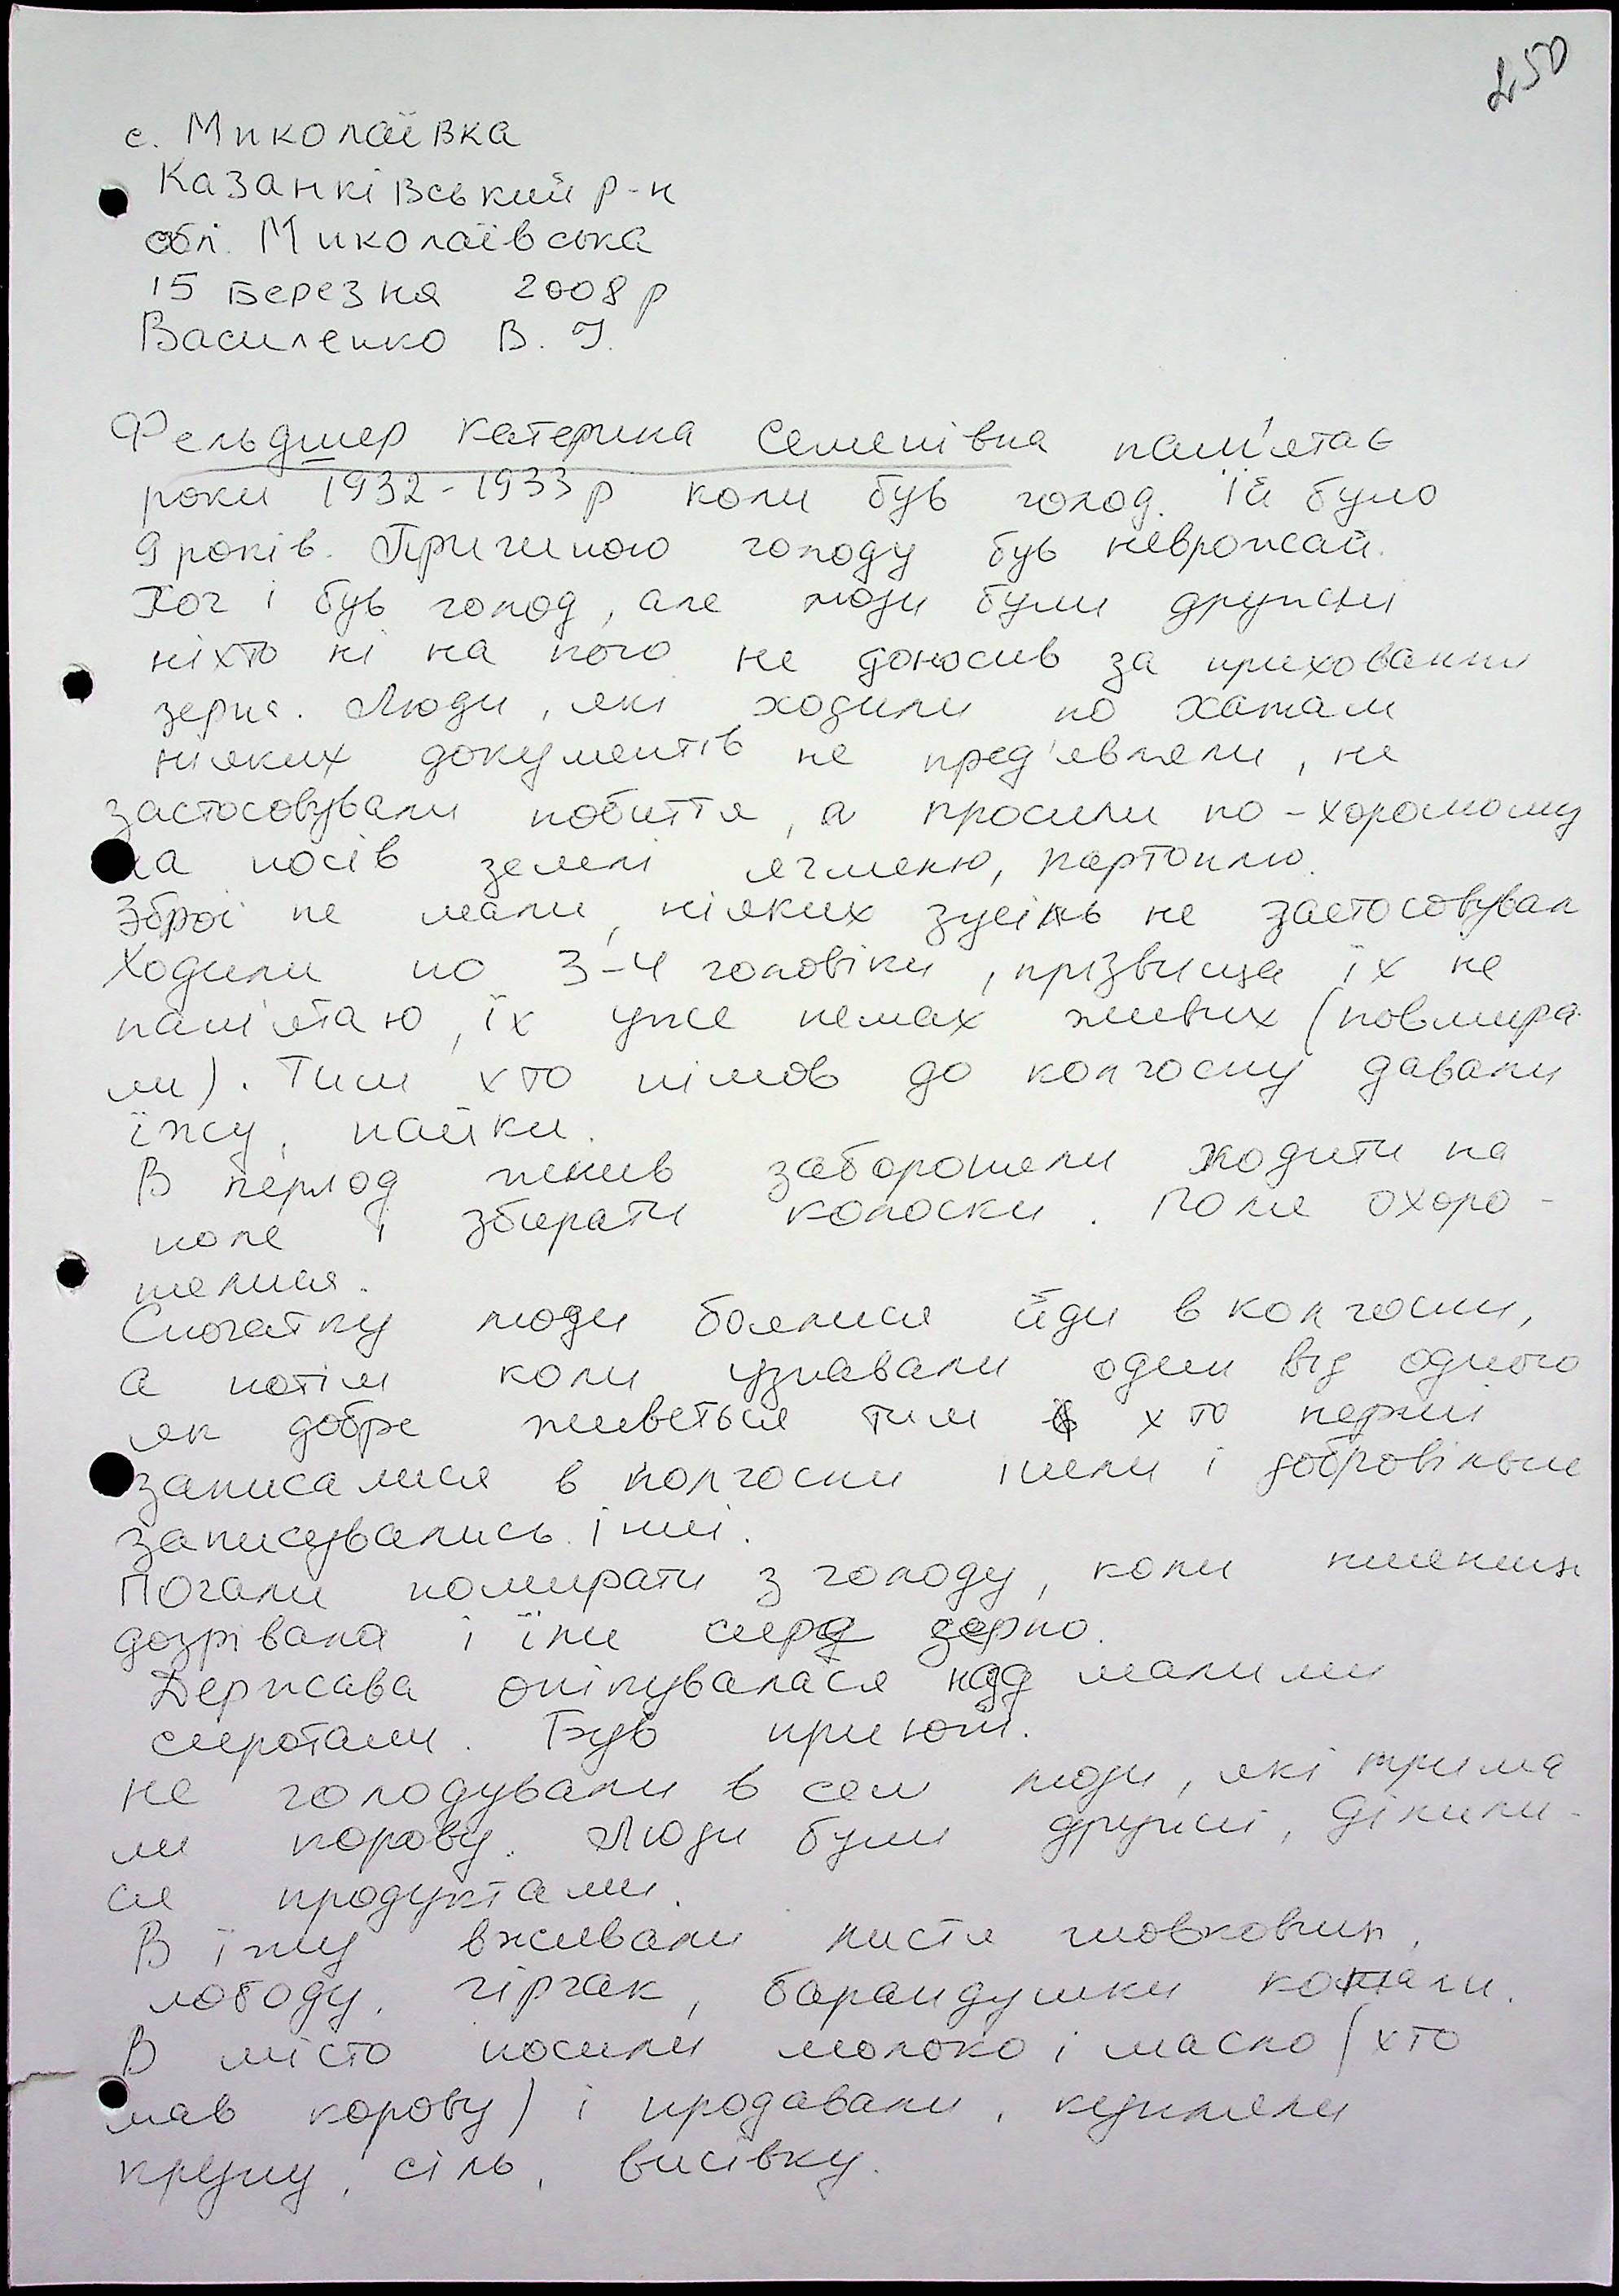 250
с. Миколаївка
Казанківський р-н
обл. Миколаївська
15 Березня 2008 р
Василенко В. І.
Фельдшер Катерина Семенівна пам'ятає
роки 1932-1933 р коли був голод. Їй було
9 років. Причиною голоду був неврожай.
Хоч і був голод, але люди були дружні
ніхто ні на кого не доносив за приховання
зерна. Люди, які ходили по хатам
ніяких документів не пред'являли, не
застосовували побиття, а просили по-хорошому
на посів землі ячменю, картоплю.
Зброї не мали, ніяких зусіль не застосовувал
Ходили по 3-4 чоловіки, прізвища їх не
пам'ятаю, їх уже немах живих (повмира-
ли). Тим хто пішов до колгоспу давали
їжу, пайки.
В період жнив забороняли ходити на
поле і збирати колоски. Поле охоро-
нялися.
Спочатку люди боялися йди в колгоспи,
а потім коли узнавали один від одного
як добре живеться тим хто перші
записалися в колгоспи ішли і добровільне
записувались інші.
Почали помирати з голоду, коли пшениця
дозрівала і їли сире зерно.
Держава опікувалася над малими
сиротами. Був приют.
Не голодували в селі люди, які трима
ли корову. Люди були дружні, ділили-
ся продуктами.
В їжу вживали листя шовковиці,
лободу, гірчак, барандушки копали.
В місто носили молоко і масло (хто
мав корову) і продавали, купляли
крупу, сіль, висівку.